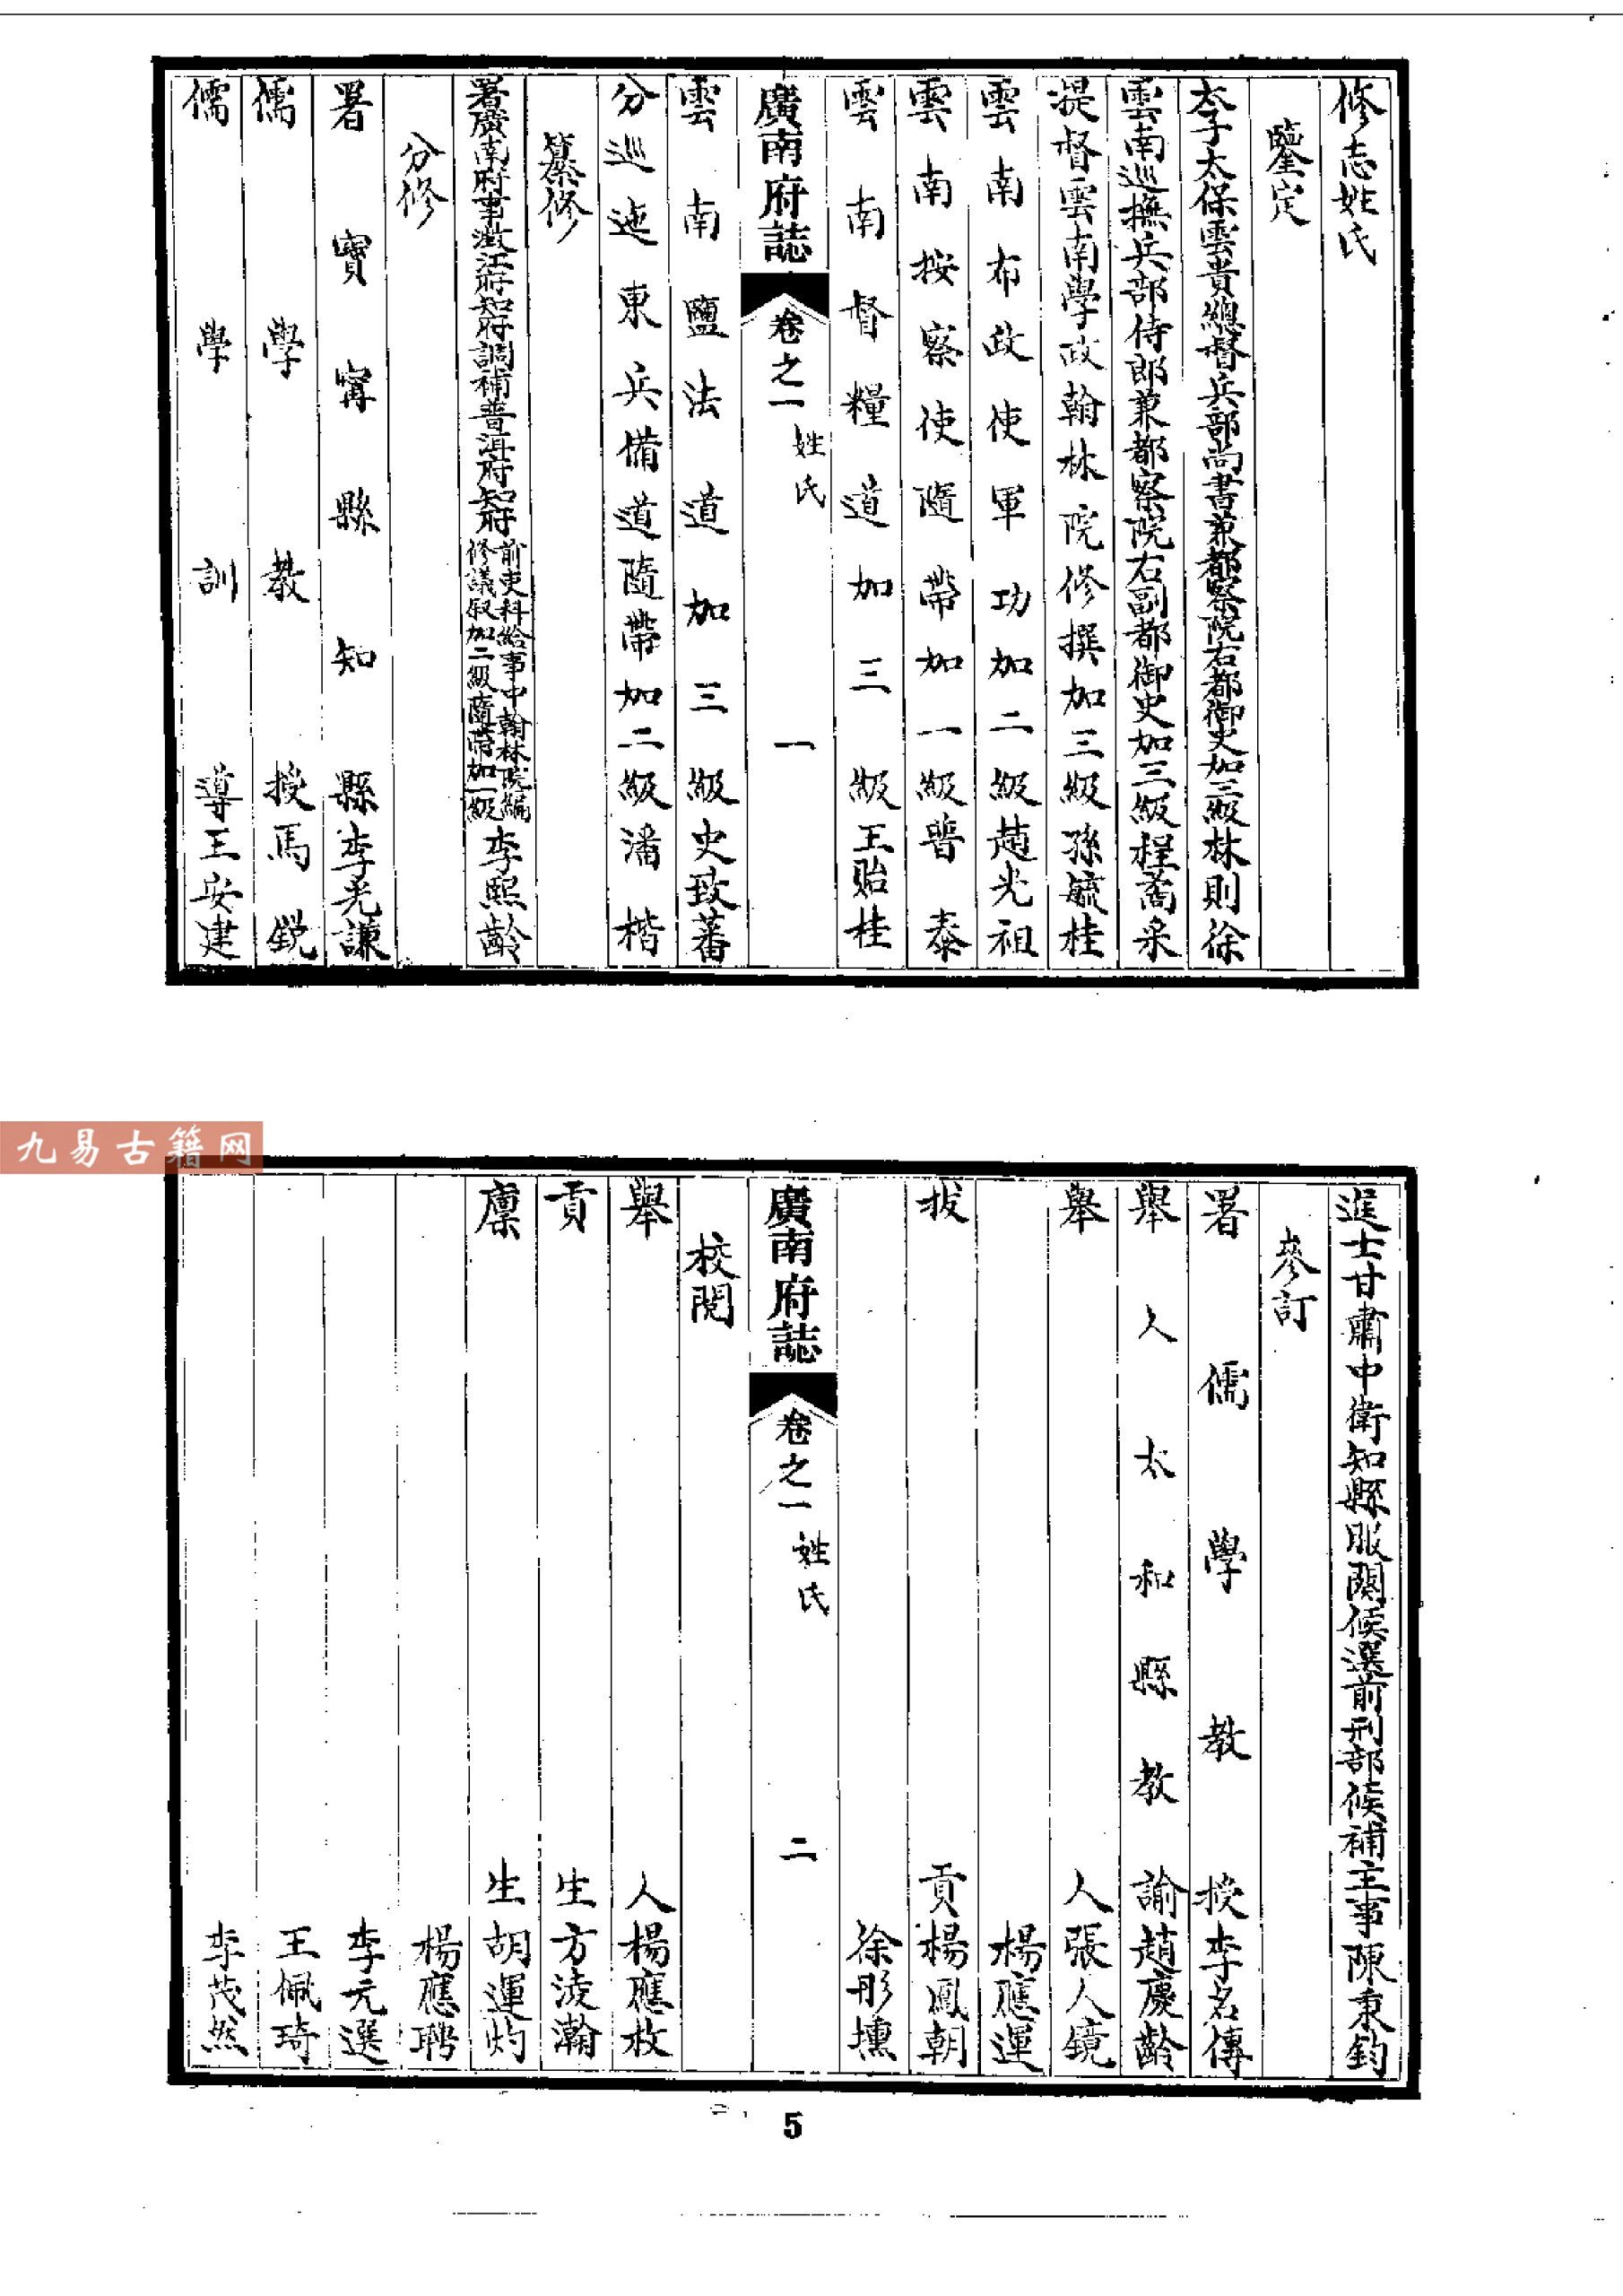 修志姓氏
鑒定
太子太保雲貴總督兵部尚書兼都察院右都御史加三級林則徐
雲南巡撫兵部侍郎兼都察院右副都御史加三級程矞采
提督雲南學政翰林院修撰加三級孫毓桂
雲南布政使軍功加二級趙光祖
雲南按察使隨帶加一級普泰
雲南督糧道加三級王貽桂
廣南府誌
卷之一
姓氏
一
雲南鹽法道加三級史致蕃
分巡迤東兵備道隨帶加二級潘楷
纂修
署廣南府事澂江府知府調補普洱府知府前吏科給事中翰林院編
修議敘加二級隨帶加一級李熙齡
分修
署寶甯縣知縣李光謙
儒學教授馬銳
儒學訓導王安建
九易古籍网
進士甘肅中衛知縣服闋候選前刑部候補主事陳秉鈞
參訂
署儒學教授李名傳
舉人太和縣教諭趙慶齡
舉人張人鏡
楊應運
拔貢楊鳳朝
徐彤壎
廣南府誌
卷之一
姓氏
二
校閱
舉人楊應枚
貢生方淩瀚
廪生胡運灼
楊應聘
李元選
王佩琦
李茂然
5